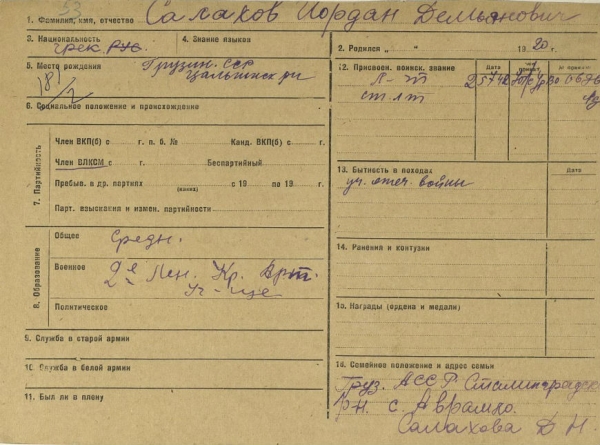 1. Фамилия, имя, отчество Салахов Иордан Демьянович
3. Национальность
Грек рус.
4. Знание языков
2. Родился „ “ 1920 г.
5. Место рождения Грузин. ССР
18/2
6. Социальное положение и происхождения
7. Партийность
Член ВКП(б) с г. п. б. № Канд. ВКП(б) с г.
Член ВЛКСМ с г. Беспартийный
Пребыв. в др. партиях с 19 по 19 г.
(каких)
Парт. взыскания и измен. партийности
8. Образование
Общее Средн.
Военное 2е Лен. Кр. Арт.
Уч-ще
Политическое
9. Служба в старой армии
10. Служба в белой армии
11. Был ли в плену
12. Присвоен. воинск. звание Дата
Л-т
ст. л-т
13. Бытность в походах Дата
уч. отеч. войны
14. Ранения и контузии
15. Награды (ордена и медали)
16. Семейное положение и адрес семьи
Груз. АССР Сталинградск
р-н. с. Аврамло.
Салахова Д Н